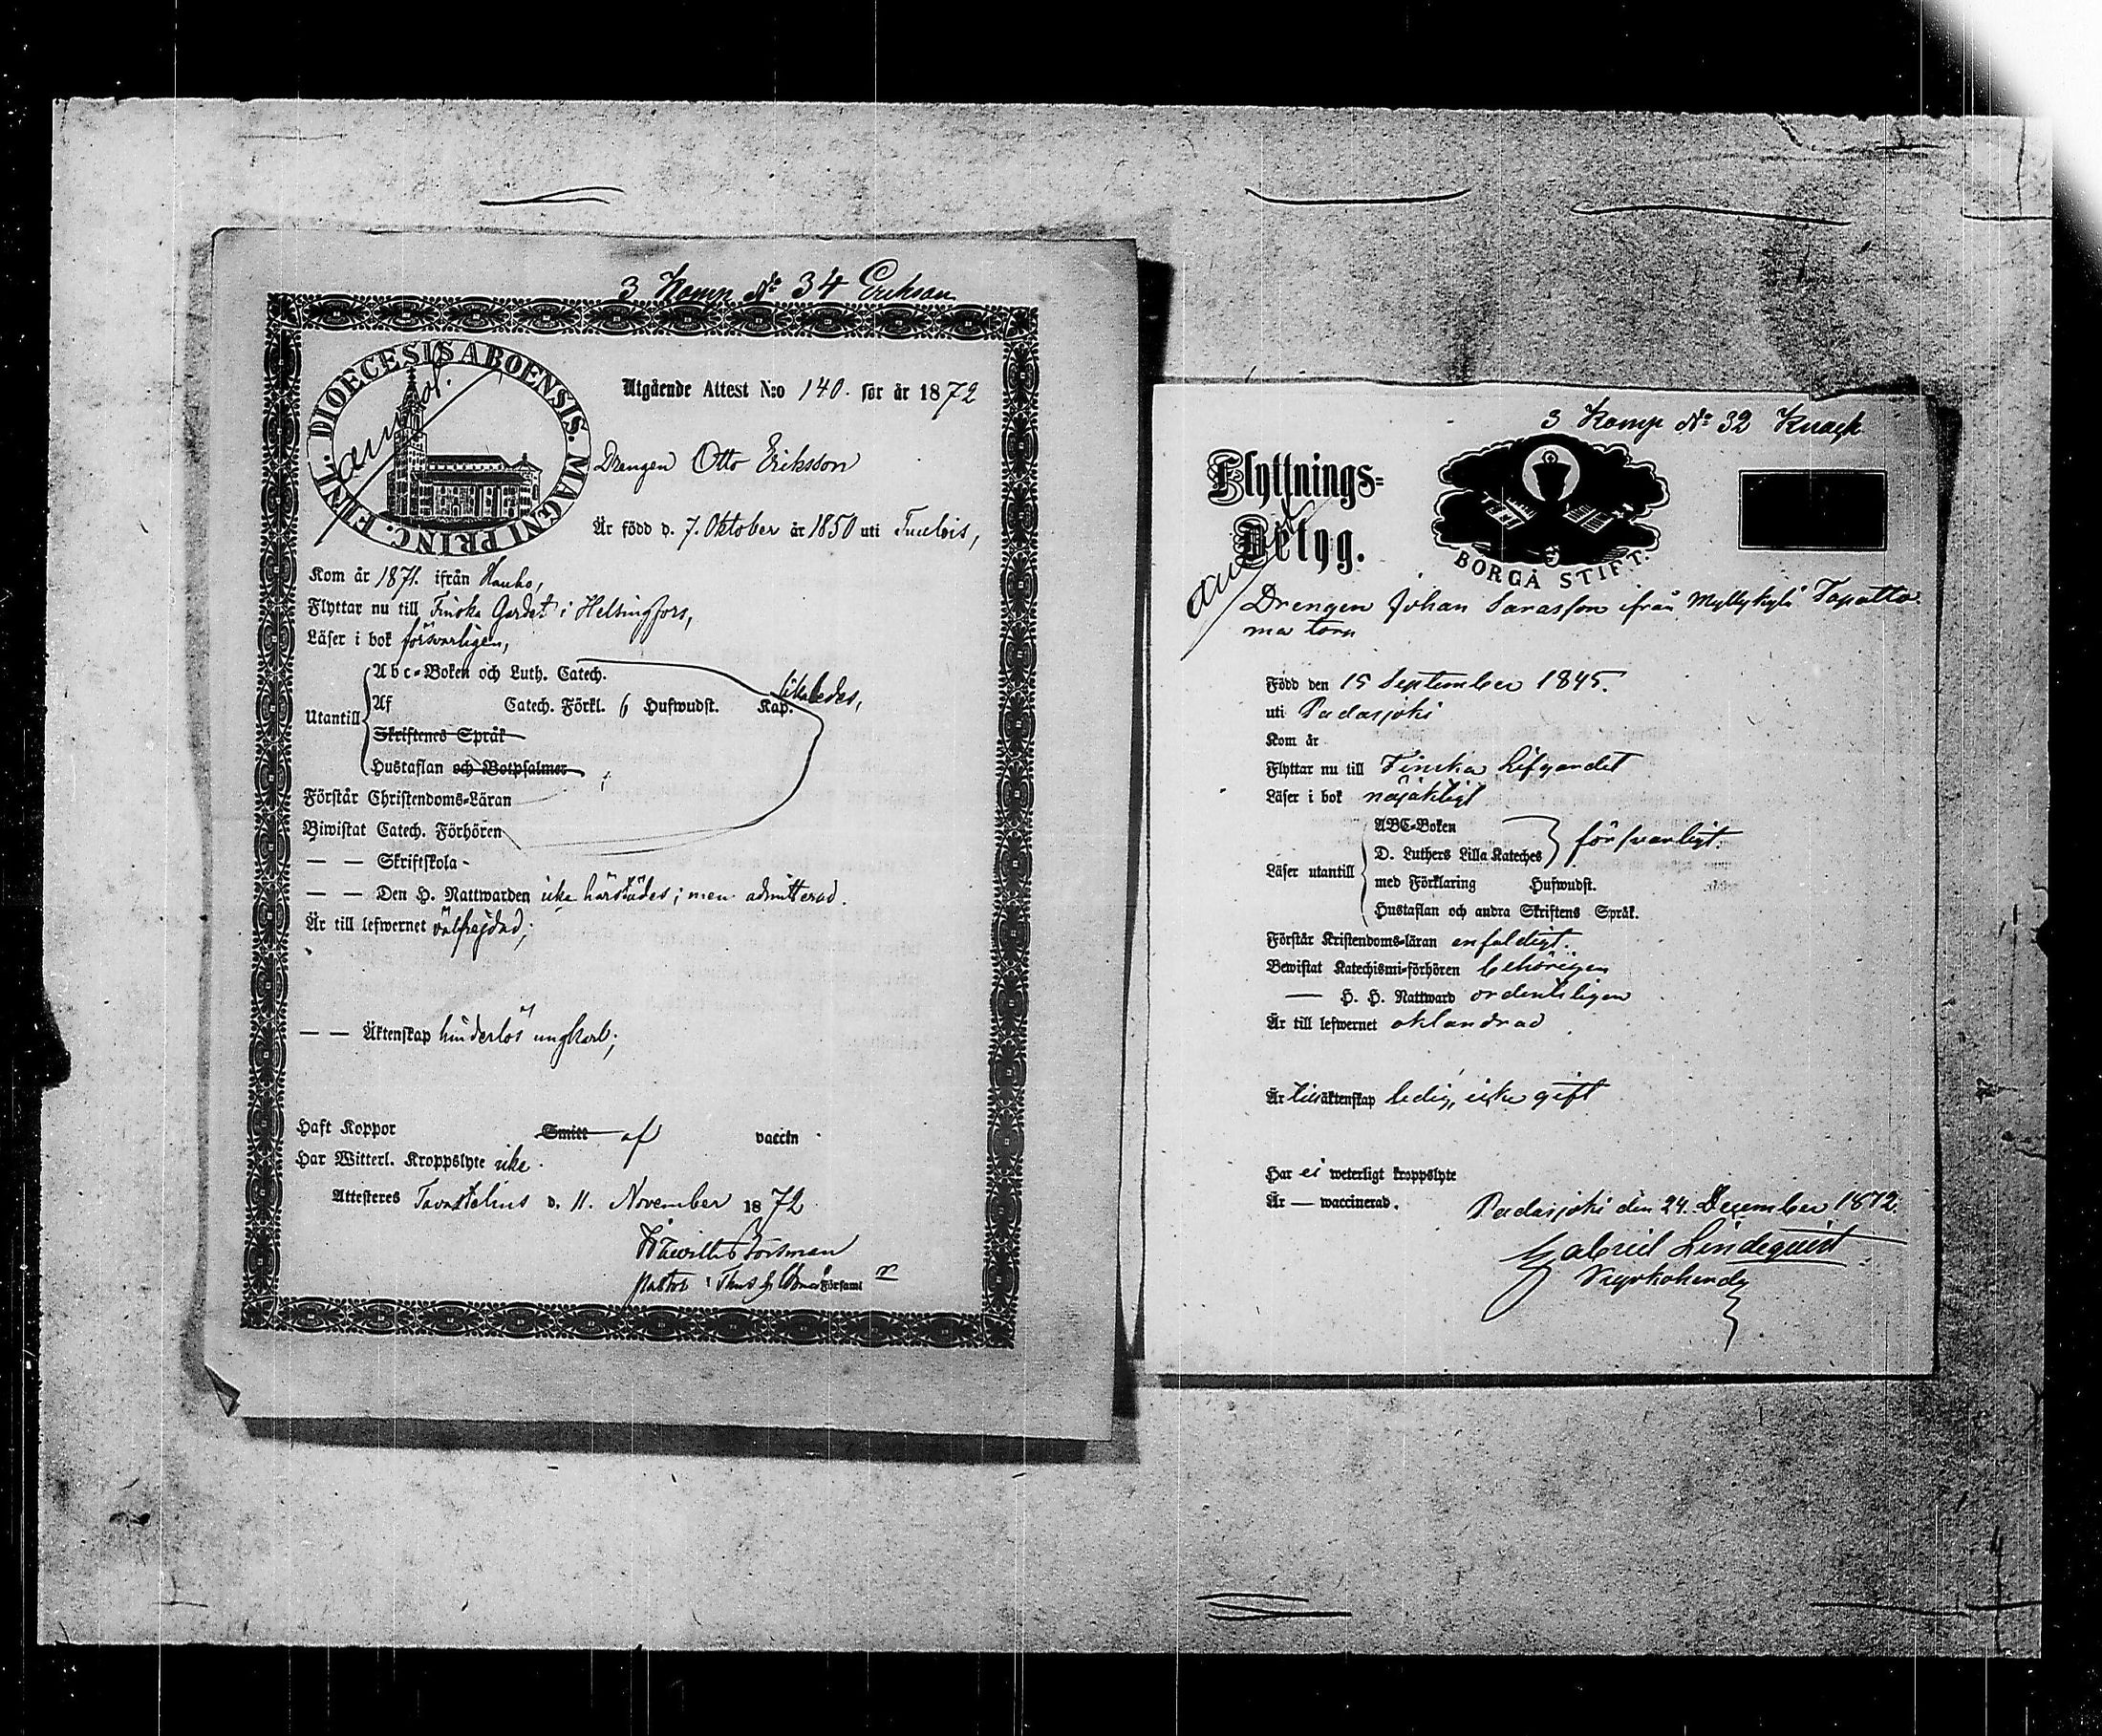 3 Komp No 34 Erikson
DIOECESIS ABOENSIS. MAGNI PRINC. FINL.
Utgående Attest N:o 140. för år 1872
Drengen Otto Eriksson
Är född d. 7. Oktober år 1850 uti Tuulois,
Kom år 1871. ifrån Hauho,
Flyttar nu till Finska Gardet i Helsingfors,
Läser i bok försvarligen,
Utantill
Abc-Boken och Luth. Catech.
Af Catech. Förkl. 6 Hufwudst. Kap. likaledes,
Skriftenes Språk
Hustaflan och Botpsalmer
Förstår Christendoms-Läran
Biwistat Catech. Förhören
— — Skriftskola -
— — Den H. Nattwarden icke härstädes; men admitterad.
Är till lefwernet välfrejdad;
— — Äktenskap hinderlös ungkarl;
Haft Koppor Smitt af vaccin
Har Witterl. Kroppslyte icke.
Attesteres Tavastehus d. 11. November 1872
Forsman
Pastor i Församl
3 Komp No 32 Knack
Flyttnings-
Betyg.
BORGÅ STIFT.
Drengen Johan Sarasson ifrån Myllykylä Tapatto
ma torp
Född den 15 September 1845.
uti Padasjoki
Kom år
Flyttar nu till Finska Lifgardet
Läser i bok nöjaktigt
Läser utantill
ABC-Boken
D. Luthers Lilla Kateches försvarligt.
med Förklaring Hufwudst.
Hustaflan och andra Skriftens Språk.
Förstår Kristendoms-läran enfaldigt.
Bewistat Katechismi-förhören behörigen
— H. H. Nattward ordentligen
Är till lefwernet oklandrad
Är till äktenskap ledig, icke gift
Har ei weterligt kroppslyte
Är — waccinerad.
Padasjoki den 24. December 1872.
Gabriel Lindequist
Kyrkoherde